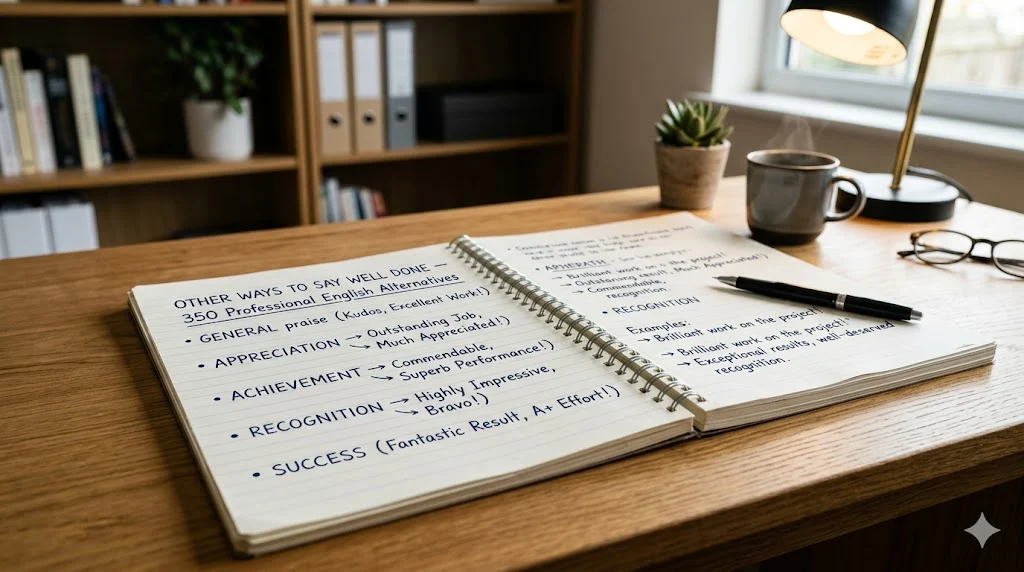 OTHER WAYS TO SAY WELL DONE —
350 Professional English Alternatives
• GENERAL praise (Kudos, Excellent Work!)
• APPRECIATION → Outstanding Job,
→ Much Appreciated!)
• ACHIEVEMENT → Commendable,
→ Superb Performance!)
• RECOGNITION → Highly Impressive,
→ Bravo!)
• SUCCESS (Fantastic Result, A+ Effort!)
→ Brilliant work on the project!
→ Outstoring result, Much Appreciated!)
→ Commendable,
recognition.
• RECOGNITION
Examples:
→ Brilliant work on the project
→ Brilliant work on the project!
→ Exceptional results, well-deserved
recognition.